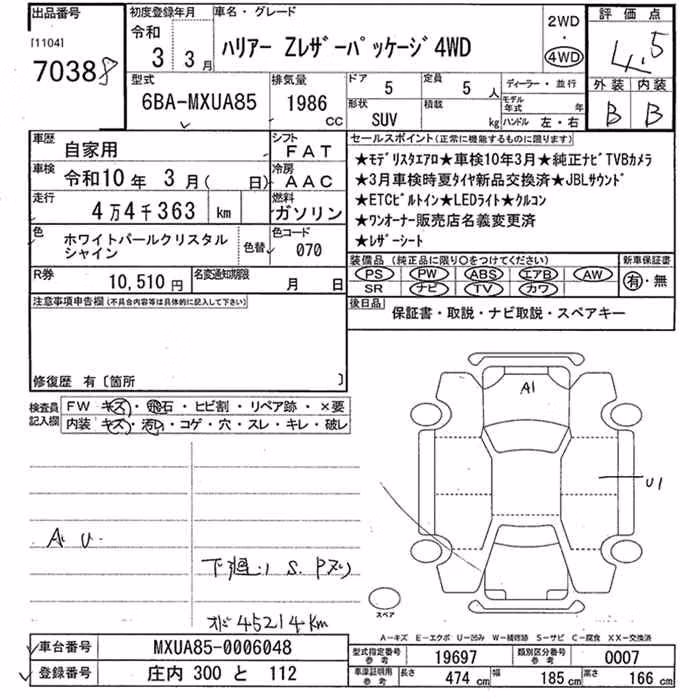 出品番号
[1104]
70388
初度登録年月
令和
3 3月
車名・グレード
ハリアー Zレザーパッケージ 4WD
2WD
・
4WD
評価点
4.5
外装 内装
B B
型式
6BA-MXUA85
排気量
1986
CC
ドア
5
定員
5 人
形状
SUV
積載
kg
ディーラー・並行
モデル年式 年
ハンドル 左・右
車歴
自家用
シフト
FAT
車検
令和10年 3月( 日)
冷房
AAC
走行
4万4千363 km
燃料
ガソリン
色
ホワイトパールクリスタル
シャイン
色替
色コード
070
R券
10,510円
名変通知期限
月 日
セールスポイント(正常に機能するものに限ります)
★モデリスタエアロ★車検10年3月★純正ナビTVBカメラ
★3月車検時夏タイヤ新品交換済★JBLサウンド
★ETCビルトイン★LEDライト★クルコン
★ワンオーナー販売店名義変更済
★レザーシート
装備品(純正品に限り○をつけてください)
PS PW ABS エアB AW
SR ナビ TV カワ
新車保証書
有・無
後日品
保証書・取説・ナビ取説・スペアキー
注意事項申告欄(不具合内容等は具体的に記入して下さい)
修復歴 有〔箇所 〕
検査員
記入欄
FW キズ・飛石・ヒビ割・リペア跡・×要
内装 キズ・汚れ・コゲ・穴・スレ・キレ・破レ
A1
U1
A U.
下廻り S. Pズリ
オド45214Km
スペア
A-キズ E-エクボ U-凹み W-補修跡 S-サビ C-腐食 XX-交換済
車台番号
MXUA85-0006048
登録番号
庄内 300 と 112
型式指定番号
参考
19697
類別区分番号
参考
0007
車庫証明用
参考
長さ
474 cm
幅
185 cm
高さ
166 cm